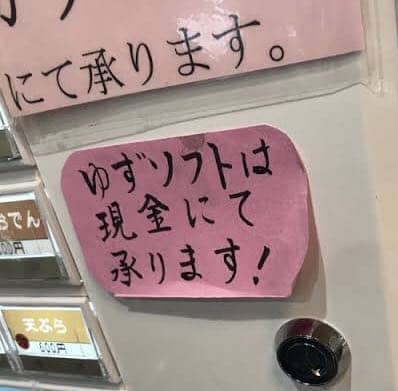 にて承ります。
ゆずソフトは
現金にて
承ります!
おでん
天ぷら
600円